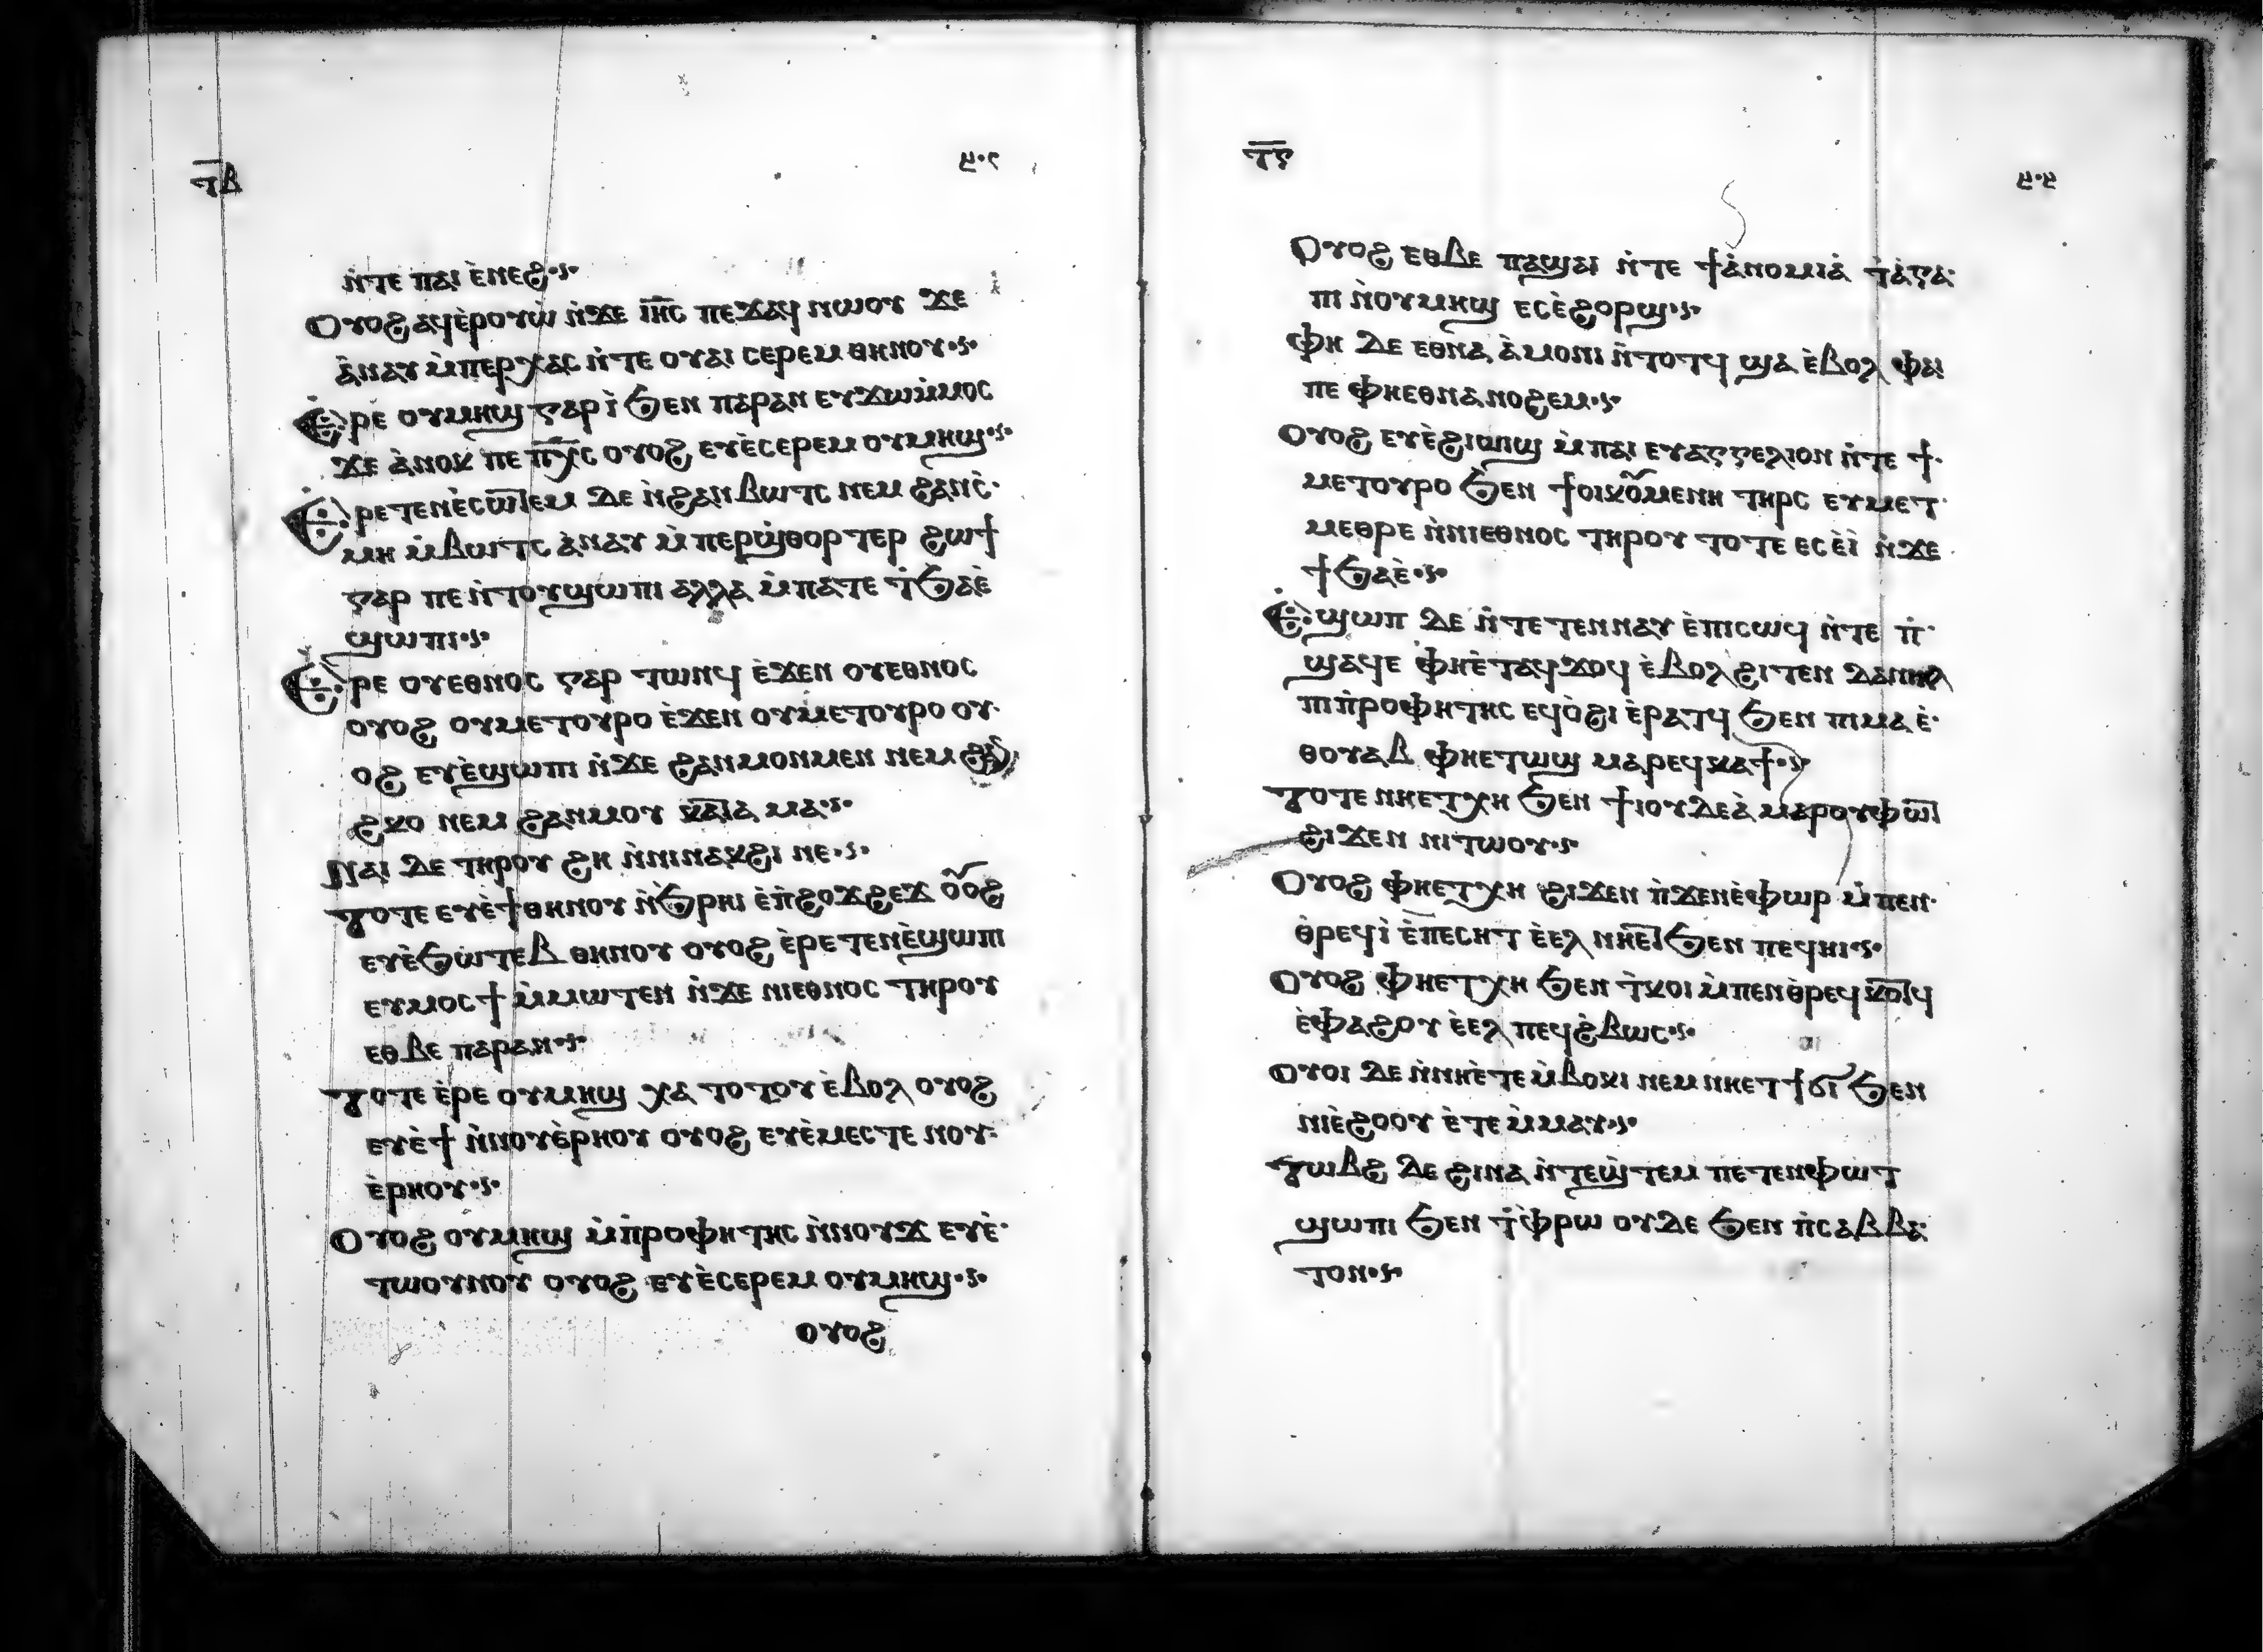 ⲧ̅ⲃ̅
ⲛ̀ⲧⲉ ⲡⲁⲓ ⲉ̀ⲛⲉϩ
ⲟⲩⲟϩ ⲁϥⲉ̀ⲣⲟⲩⲱ̀ ⲛ̀ϫⲉ ⲓ̅ⲏ̅ⲥ ⲡⲉϫⲁϥ ⲛⲱⲟⲩ ϫⲉ
ⲁ̀ⲛⲁⲩ ⲙ̀ⲡⲉⲣⲭⲁⲥ ⲛ̀ⲧⲉ ⲟⲩⲁⲓ ⲥⲉⲣⲉⲙ ⲑⲏⲛⲟⲩ
Ⲉⲣⲉ ⲟⲩⲙⲏϣ ⲅⲁⲣ ⲓ̀ ϧⲉⲛ ⲡⲁⲣⲁⲛ ⲉⲩϫⲱⲙ̀ⲙⲟⲥ
ϫⲉ ⲁ̀ⲛⲟⲕ ⲡⲉ ⲡ̅ⲭ̅ⲥ ⲟⲩⲟϩ ⲉⲩⲉ̀ⲥⲉⲣⲉⲙ ⲟⲩⲙⲏϣ
Ⲉⲣⲉⲧⲉⲛⲉ̀ⲥⲱ̅ⲧⲉⲙ ⲇⲉ ⲛ̀ϩⲁⲛⲃⲱⲧⲥ ⲛⲉⲙ ϩⲁⲛⲥ̀
ⲙⲏ ⲙ̀ⲃⲱⲧⲥ ⲁ̀ⲛⲁⲩ ⲙ̀ⲡⲉⲣϣ̀ⲑⲟⲣⲧⲉⲣ ϩⲱϯ
ⲅⲁⲣ ⲡⲉ ⲛ̀ⲧⲟⲩϣⲱⲡⲓ ⲁⲗⲗⲁ ⲙ̀ⲡⲁⲧⲉ ⲧ̀ϧⲁⲉ̀
ϣⲱⲡⲓ
Ⲉⲣⲉ ⲟⲩⲉⲑⲛⲟⲥ ⲅⲁⲣ ⲧⲱⲛϥ ⲉ̀ϫⲉⲛ ⲟⲩⲉⲑⲛⲟⲥ
ⲟⲩⲟϩ ⲟⲩⲙⲉⲧⲟⲩⲣⲟ ⲉ̀ϫⲉⲛ ⲟⲩⲙⲉⲧⲟⲩⲣⲟ ⲟⲩ
ⲟϩ ⲉⲩⲉ̀ϣⲱⲡⲓ ⲛ̀ϫⲉ ϩⲁⲛⲙⲟⲛⲙⲉⲛ ⲛⲉⲙ ϩⲁⲛ
ϩⲕⲟ ⲛⲉⲙ ϩⲁⲛⲙⲟⲩ ⲕⲁ̅ⲧⲁ ⲙⲁ
ⲛⲁⲓ ⲇⲉ ⲧⲏⲣⲟⲩ ϩⲏ ⲛ̀ⲛⲓⲛⲁⲕϩⲓ ⲛⲉ
ⲧⲟⲧⲉ ⲉⲩⲉ̀ϯⲑⲏⲛⲟⲩ ⲛ̀ϧⲣⲏⲓ ⲉ̀ⲡ̀ϩⲟϫϩⲉϫ ⲟ̅ⲟϩ
ⲉⲩⲉ̀ϧⲱⲧⲉⲃ ⲑⲏⲛⲟⲩ ⲟⲩⲟϩ ⲉ̀ⲣⲉⲧⲉⲛⲉ̀ϣⲱⲡⲓ
ⲉⲩⲙⲟⲥϯ ⲙ̀ⲙⲱⲧⲉⲛ ⲛ̀ϫⲉ ⲛⲓⲉⲑⲛⲟⲥ ⲧⲏⲣⲟⲩ
ⲉⲑⲃⲉ ⲡⲁⲣⲁⲛ
ⲧⲟⲧⲉ ⲉ̀ⲣⲉ ⲟⲩⲙⲏϣ ⲭⲁ ⲧⲟⲧⲟⲩ ⲉ̀ⲃⲟⲗ ⲟⲩⲟϩ
ⲉⲩⲉ̀ϯ ⲛ̀ⲛⲟⲩⲉ̀ⲣⲏⲟⲩ ⲟⲩⲟϩ ⲉⲩⲉ̀ⲙⲉⲥⲧⲉ ⲛⲟⲩ
ⲉ̀ⲣⲏⲟⲩ
ⲟⲩⲟϩ ⲟⲩⲙⲏϣ ⲙ̀ⲡ̀ⲣⲟⲫⲏⲧⲏⲥ ⲛ̀ⲛⲟⲩϫ ⲉⲩⲉ̀
ⲧⲱⲟⲩⲛⲟⲩ ⲟⲩⲟϩ ⲉⲩⲉ̀ⲥⲉⲣⲉⲙ ⲟⲩⲙⲏϣ
ⲟⲩⲟϩ
ⲧ̅ⲅ̅
ⲟⲩⲟϩ ⲉⲑⲃⲉ ⲡⲁϣⲁⲓ ⲛ̀ⲧⲉ ϯⲁ̀ⲛⲟⲙⲓⲁ̀ ⲧ̀ⲁ̀ⲅⲁ
ⲡⲓ ⲛ̀ⲟⲩⲙⲏϣ ⲉⲥⲉ̀ϩⲟⲣϣ
ⲫⲏ ⲇⲉ ⲉⲑⲛⲁ ⲁ̀ⲙⲟⲛⲓ ⲛ̀ⲧⲟⲧϥ ϣⲁ ⲉ̀ⲃⲟⲗ ⲫⲁⲓ
ⲡⲉ ⲫⲏⲉⲑⲛⲁⲛⲟϩⲉⲙ
ⲟⲩⲟϩ ⲉⲩⲉ̀ϩⲓⲱⲓϣ ⲙ̀ⲡⲁⲓ ⲉⲩⲁⲅⲅⲉⲗⲓⲟⲛ ⲛ̀ⲧⲉ ϯ
ⲙⲉⲧⲟⲩⲣⲟ ϧⲉⲛ ϯⲟⲓⲕⲟ̅ⲙⲉⲛⲏ ⲧⲏⲣⲥ ⲉⲩⲙⲉⲧ
ⲙⲉⲑⲣⲉ ⲛ̀ⲛⲓⲉⲑⲛⲟⲥ ⲧⲏⲣⲟⲩ ⲧⲟⲧⲉ ⲉⲥⲉ̀ⲓ̀ ⲛ̀ϫⲉ
ϯϧⲁⲉ̀
Ⲉϣⲱⲡ ⲇⲉ ⲛ̀ⲧⲉⲧⲉⲛⲛⲁⲩ ⲉ̀ⲡⲓⲥⲱϥ ⲛ̀ⲧⲉ ⲡ̀
ϣⲁϥⲉ ⲫⲏⲉ̀ⲧⲁϥϫⲟϥ ⲉ̀ⲃⲟⲗ ϩⲓⲧⲉⲛ ⲇⲁⲛⲓⲏⲗ
ⲡⲓⲡ̀ⲣⲟⲫⲏⲧⲏⲥ ⲉϥⲟ̀ϩⲓ ⲉ̀ⲣⲁⲧϥ ϧⲉⲛ ⲡⲓⲙⲁ ⲉ̀
ⲑⲟⲩⲁⲃ ⲫⲏⲉⲧⲱϣ ⲙⲁⲣⲉϥⲕⲁϯ
ⲧⲟⲧⲉ ⲛⲏⲉⲧⲭⲏ ϧⲉⲛ ϯⲓⲟⲩⲇⲉⲁ̀ ⲙⲁⲣⲟⲩⲫⲱ̅ⲧ
ϩⲓϫⲉⲛ ⲛⲓⲧⲱⲟⲩ
ⲟⲩⲟϩ ⲫⲏⲉⲧⲭⲏ ϩⲓϫⲉⲛ ⲡ̀ϫⲉⲛⲉ̀ⲫⲱⲣ ⲙ̀ⲡⲉⲛ
ⲑ̀ⲣⲉϥⲓ̀ ⲉ̀ⲡⲉⲥⲏⲧ ⲉ̀ⲉⲗ ⲛⲏⲉ̅ⲧ ϧⲉⲛ ⲡⲉϥⲏⲓ
ⲟⲩⲟϩ ⲫⲏⲉⲧⲭⲏ ϧⲉⲛ ⲧ̀ⲕⲟⲓ ⲙ̀ⲡⲉⲛⲑ̀ⲣⲉϥⲕⲟ̅ⲧϥ
ⲉ̀ⲫⲁϩⲟⲩ ⲉ̀ⲉⲗ ⲡⲉϥϩ̀ⲃⲱⲥ
ⲟⲩⲟⲓ ⲇⲉ ⲛ̀ⲛⲏⲉ̀ⲧⲉⲙ̀ⲃⲟⲕⲓ ⲛⲉⲙ ⲛⲏⲉⲧϯϭⲓ ϧⲉⲛ
ⲛⲓⲉ̀ϩⲟⲟⲩ ⲉ̀ⲧⲉ ⲙ̀ⲙⲁⲩ
ⲧⲱⲃϩ ⲇⲉ ϩⲓⲛⲁ ⲛ̀ⲧⲉϣ̀ⲧⲉⲙ ⲡⲉⲧⲉⲛⲫⲱⲧ
ϣⲱⲡⲓ ϧⲉⲛ ⲧ̀ⲫ̀ⲣⲱ ⲟⲩⲇⲉ ϧⲉⲛ ⲡ̀ⲥⲁⲃⲃⲁ
ⲧⲟⲛ